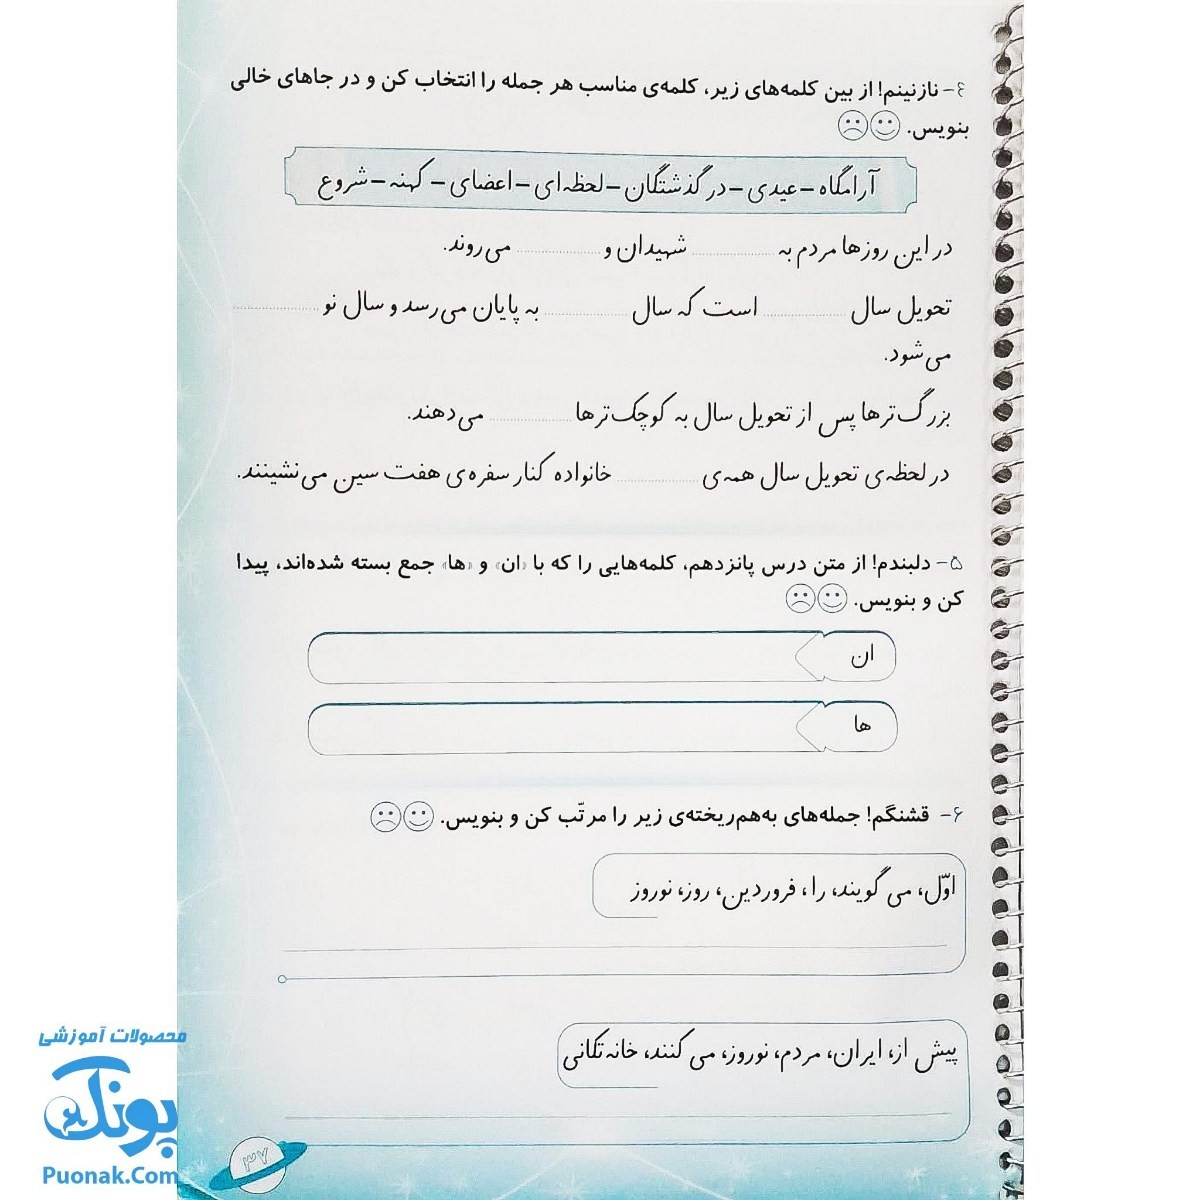 ۴- نازنینم! از بین کلمه‌های زیر، کلمه‌ی مناسب هر جمله را انتخاب کن و در جاهای خالی
بنویس.
آرامگاه – عیدی – درگذشتگان – لحظه‌ای – اعضای – کهنه – شروع
در این روزها مردم به .......... شهیدان و .......... می‌روند.
تحویل سال .......... است که سال .......... به پایان می‌رسد و سال نو ..........
می‌شود.
بزرگ‌ترها پس از تحویل سال به کوچک‌ترها .......... می‌دهند.
در لحظه‌ی تحویل سال همه‌ی .......... خانواده کنار سفره‌ی هفت سین می‌نشینند.
۵- دلبندم! از متن درس پانزدهم، کلمه‌هایی را که با «ان» و «ها» جمع بسته شده‌اند، پیدا
کن و بنویس.
ان
ها
۶- قشنگم! جمله‌های به‌هم‌ریخته‌ی زیر را مرتّب کن و بنویس.
اوّل، می گویند، را، فروردین، روز، نوروز
پیش از، ایران، مردم، نوروز، می کنند، خانه تکانی
محصولات آموزشی
پونک
Puonak.Com
۳۷